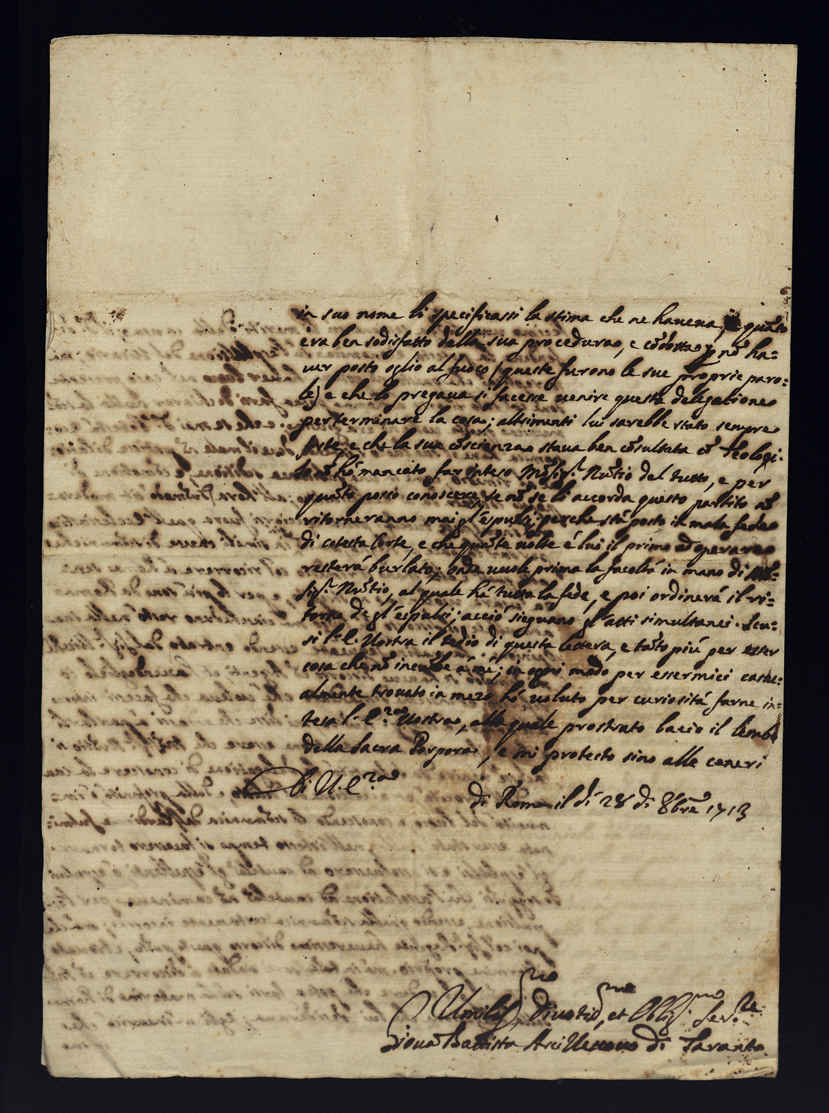 in suo nome li specificassi la stima che ne haueua, e quãto
era ben sodisfatto della sua procedura, e cõdotta p nõ ha=
uer posto oglio al fuoco (queste furono le sue proprie paro=
le) e che lo pregaua si facesse uenire questa delegatione
per terminare la cosa; altrimenti lui sarebbe stato sempre
forte, e che la sua cõscienza staua ben cõsultata cõ Teologi.
nõ hò mancato far inteso Mons.r Nũtio del tutto, e per
quãto posso conoscere, se nõ se li accorda questo partito nõ
ritorneranno mai gl'espulsi; perche stà posto in mala fede
di cotesta Corte, e che quãte uolte è lui il primo ad operare
resterà burlato; onde uuole prima la facoltà in mano di
Sig.r Nũtio, al quale hà tutta la fede, e poi ordinerà il ri=
torno de gl'espulsi; acciò sieguano gl'atti simultanei. Scu=
si l'E. Vostra il tedio di questa lettera, e tãto più per esser
cosa che nõ incũbe à me; in ogni modo per essermici casu=
almente trouato in mezo hò uoluto per curiosità farne in=
tesa l'E.za Vostra, alla quale prostrato bacio il lembo
della Sacra Porpora, e mi protesto sino alle ceneri
Di V. E.za
di Roma il dì 28 di 8bre 1713
Umiliss.mo Diuotiss.mo, et Obblig.mo Ser.re
Giouã Battista Arciuescouo di Taranto